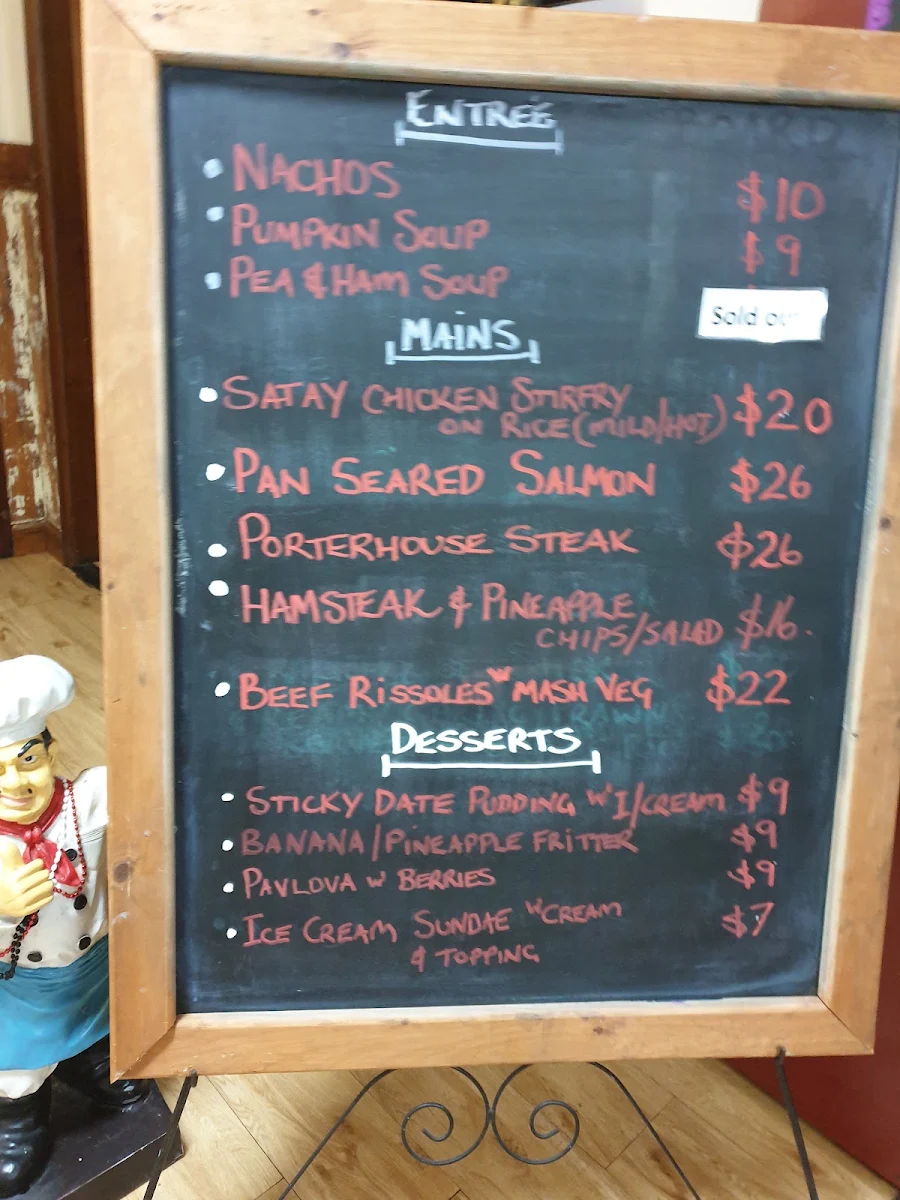 ENTREÉ
NACHOS $10
PUMPKIN SOUP $9
PEA & HAM SOUP
Sold out
MAINS
SATAY CHICKEN STIRFRY
ON RICE (MILD/HOT) $20
PAN SEARED SALMON $26
PORTERHOUSE STEAK $26
HAMSTEAK & PINEAPPLE
CHIPS/SALAD $16.
BEEF RISSOLES W MASH VEG $22
DESSERTS
STICKY DATE PUDDING W I/CREAM $9
BANANA/PINEAPPLE FRITTER $9
PAVLOVA W BERRIES $9
ICE CREAM SUNDAE W CREAM $7
& TOPPING